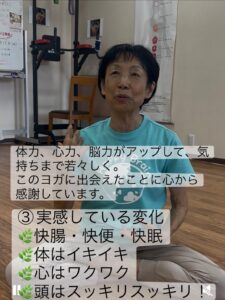 体力、心力、脳力がアップして、気
持ちまで若々しく。
このヨガに出会えたことに心から
感謝しています。
③実感している変化
🌿快腸・快便・快眠
🌿体はイキイキ
🌿心はワクワク
🌿頭はスッキリスッキリ！